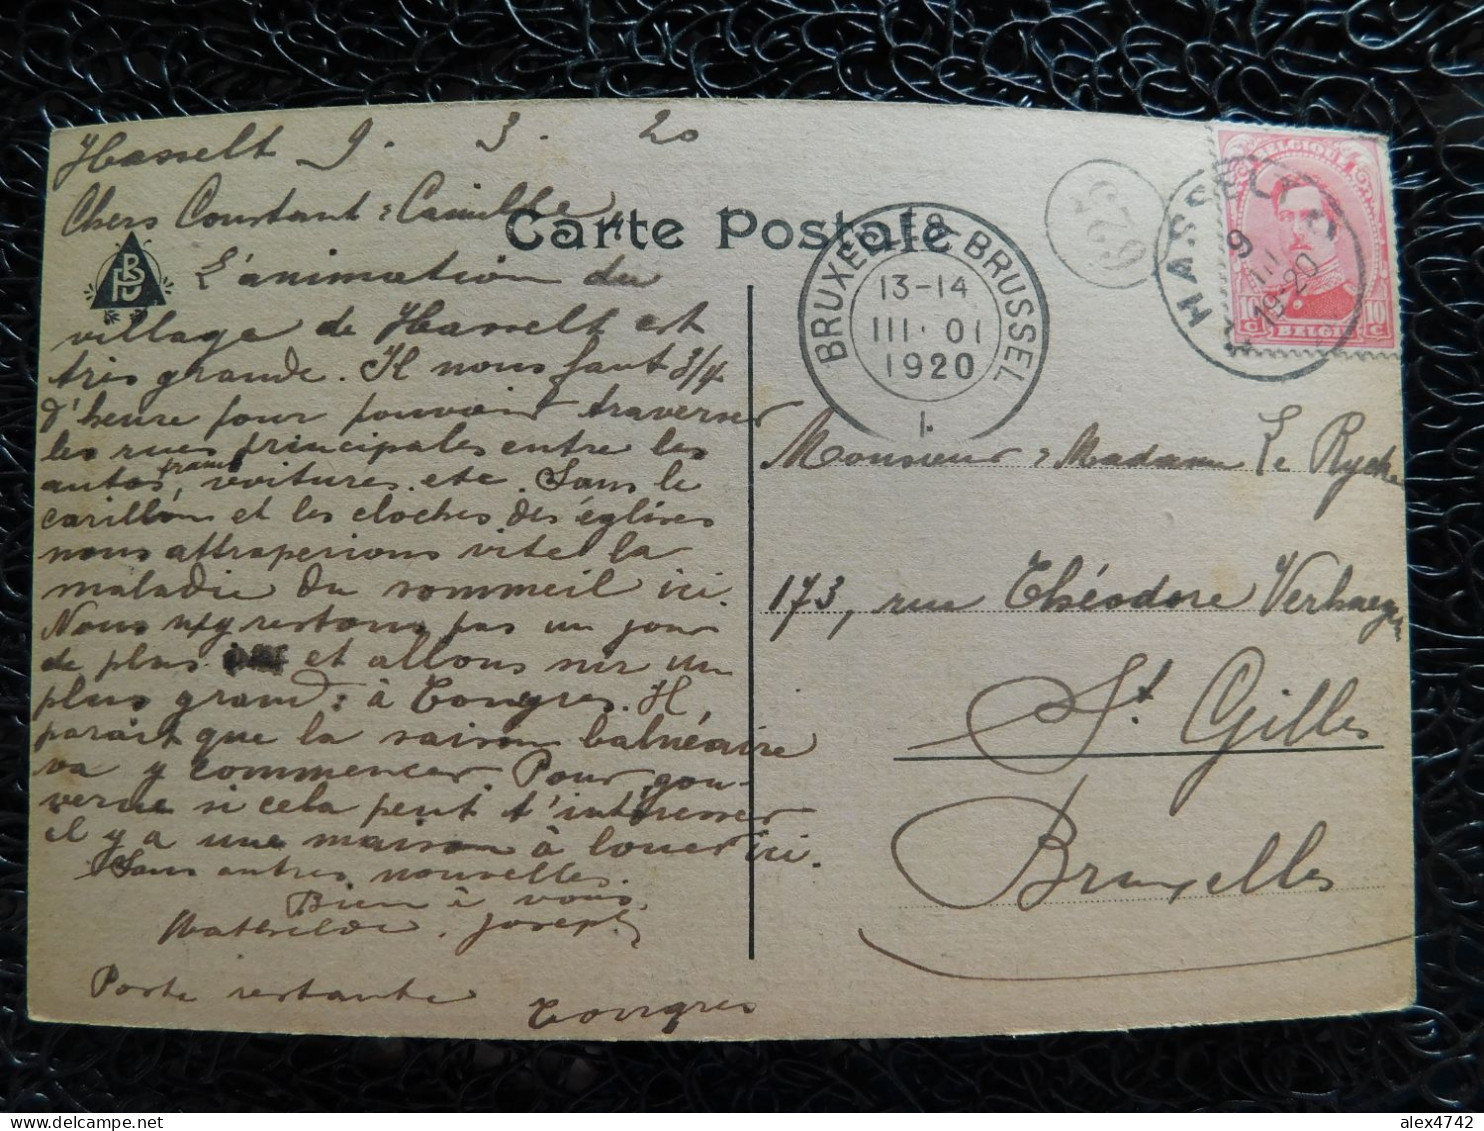 Hasselt 9. 3. 20
Chers Constant & Camille,
Carte Postale
L'animation du
village de Hasselt est
très grande. Il nous faut 3/4
d'heure pour pouvoir traverser
les rues principales entre les
autos, trams, voitures. etc. Sans le
carillon et les cloches des églises
nous attraperions vite la
maladie du sommeil ici.
Nous n'y restons pas un jour
de plus et allons sur un
plus grand: à Tongres. Il
paraît que la saison balnéaire
va y commencer. Pour gou-
verne si cela peut t'intéresser
il y a une maison à louer ici.
Sans autres nouvelles.
Bien à vous,
Mathilde. Joseph
Poste restante Tongres
BRUXELLES BRUSSEL
13-14
III. 01
1920
1.
629
HASSELT
9
III
19-20
BELGIQUE
10 c
BELGIË
10 c
Monsieur & Madame De Rycke
173, rue Théodore Verhaegen
St Gilles
Bruxelles
alex4742